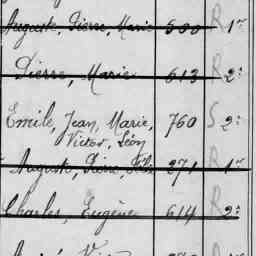 Auguste, Pierre, Marie 500 R 1er
Pierre, Marie 613 R 2e
Emile, Jean, Marie, 760 S 2e
Victor, Léon
Auguste, Pierre, Félix 271 R 1er
Charles, Eugène 614 R 2e